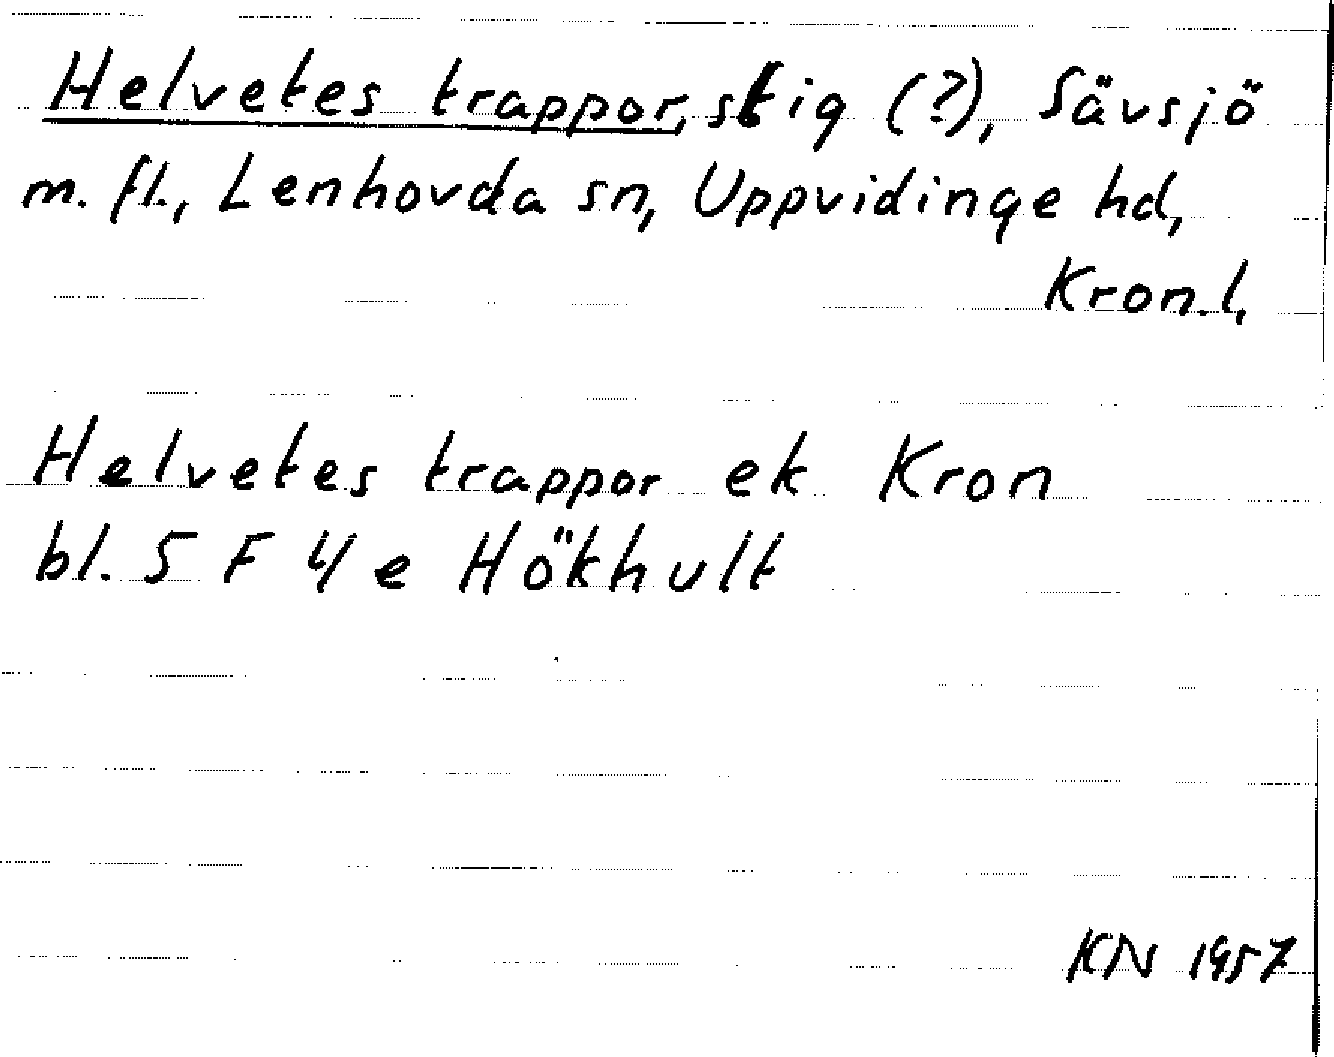 Helvetes trappor, stig (?), Sävsjö
m. fl., Lenhovda sn, Uppvidinge hd,
Kron. l.
Helvetes trappor ek Kron
bl. 5 F 4 e Hökhult
KN 1957